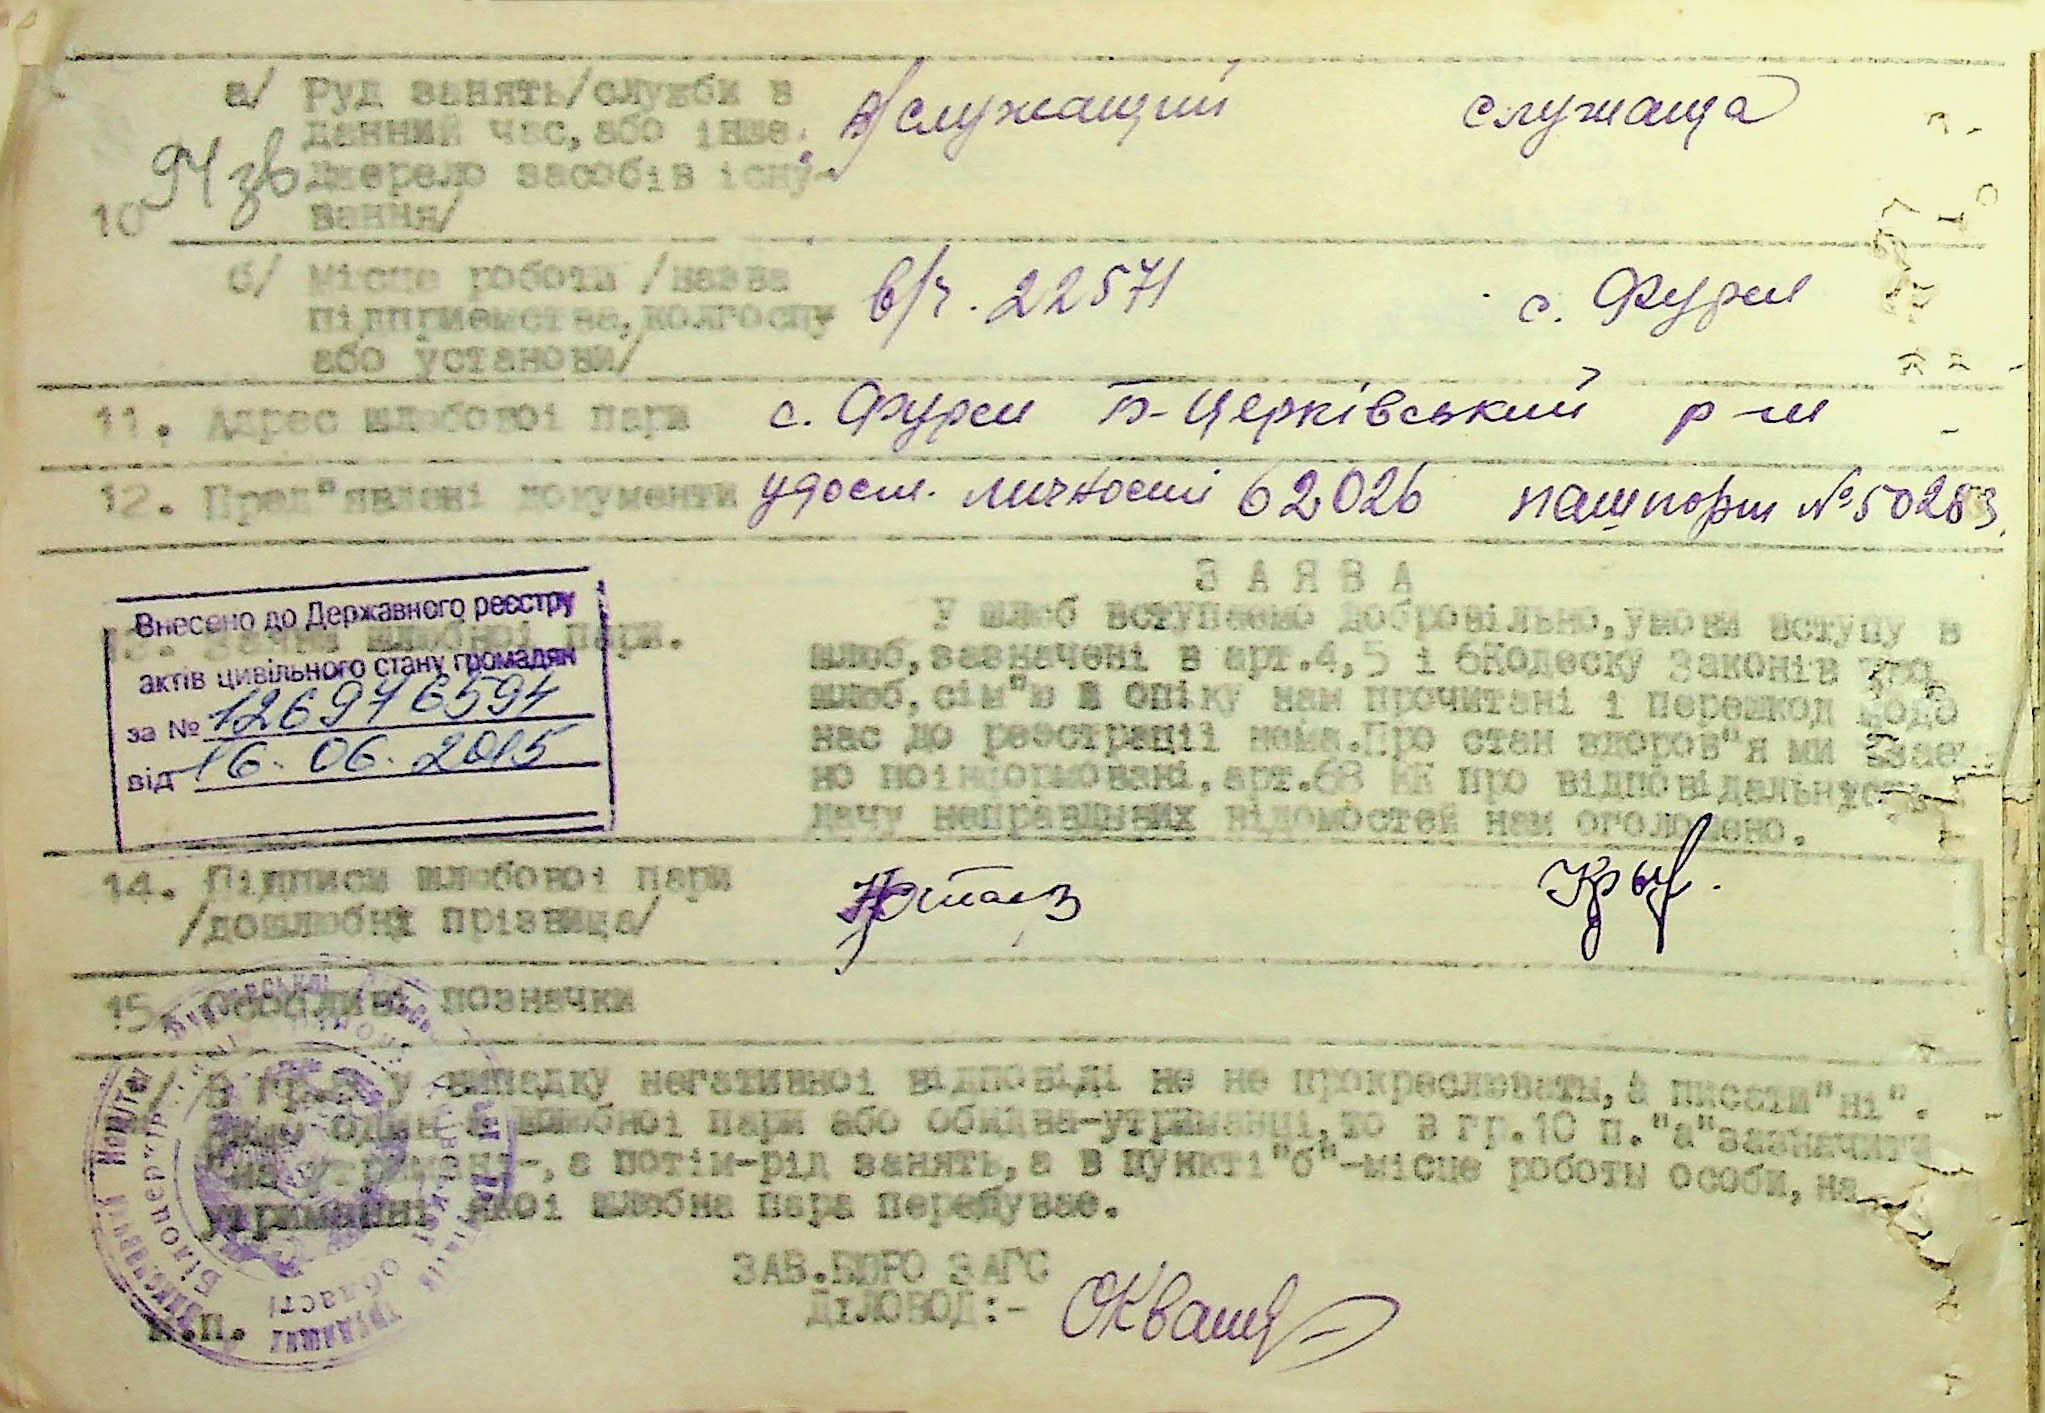 а/ Руд занять/служби в
данний час, або інше
джерело засобів існу-
вання/
10
94 зв
служащий служаща
б/ місце роботи /назва
підприємства, колгоспу
або установи/
в/ч. 22571 с. Фурси
11. Адрес шлюбової пари с. Фурси Б-Церківський р-н
12. Пред"явлені документи удост. личности 62026 паспорт № 50283
З А Я В А
У шлюб вступаємо добровільно, умови вступу в
шлюб, зазначені в арт.4,5 і 6Кодеску Законів про
шлюб, сім"ю в опіку нам прочитані і перешкод щодо
нас до реєстрації нема. Про стан здоров"я ми взаєм
но поінформовані, арт.68 КК про відповідальність
дачу неправдивих відомостей нам оголошено.
13. Заява шлюбної пари.
Внесено до Державного реєстру
актів цивільного стану громадян
за № 126976594
від 16.06.2015
14. Підписи шлюбової пари
/дошлюбні прізвища/
15. Особливі позначки
В гр. у випадку негативної відповіді не не прокреслювать, а писати "ні".
Якщо один з шлюбної пари або обидва-утриманці, то в гр.10 п."а" зазначити
"на утриманні-, а потім-рід занять, а в пункті "б"-місце роботи особи, на
утриманні якої шлюбна пара перебуває.
ЗАВ.БЮРО ЗАГС
ДІЛОВОД:-
м.п.
області